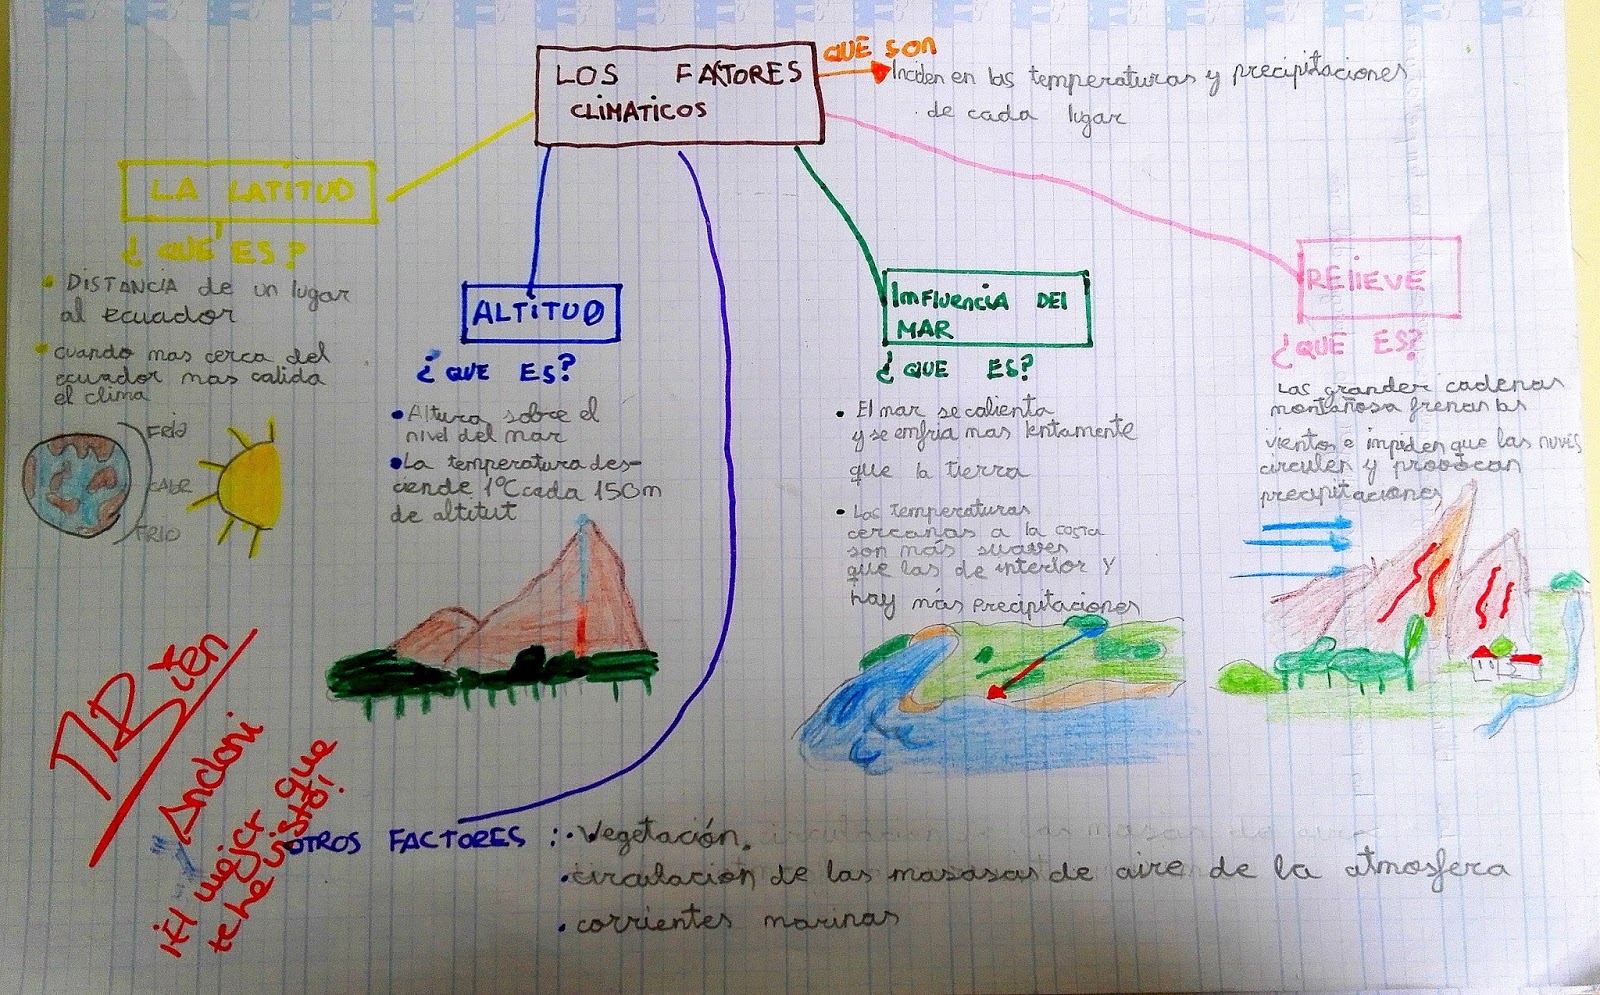 LOS FACTORES
CLIMATICOS
QUE SON
Inciden en las temperaturas y precipitaciones
de cada lugar
LA LATITUD
¿QUE ES?
DISTANCIA de un lugar
al ecuador
cuando mas cerca del
ecuador mas calida
el clima
FRIO
FRIO
ALTITUD
¿QUE ES?
Altura sobre el
nivel del mar
La temperatura des-
ciende 1°C cada 150m
de altitut
IMFLUENCIA DEL
MAR
¿QUE ES?
El mar se calienta
y se emfria mas lentamente
que la tierra
Las temperaturas
cercanas a la costa
son más suaves
que las de interior y
hay más precipitaciones
RELIEVE
¿QUE ES?
Las grandes cadenas
montañosa frenas las
vientos e impiden que las nuves
circulen y provocan
precipitaciones
Bien
Andoni
¡El mejor que
te he visto!
OTROS FACTORES :· Vegetación.
· circulacion de las masasas de aire de la atmosfera
· corrientes marinas